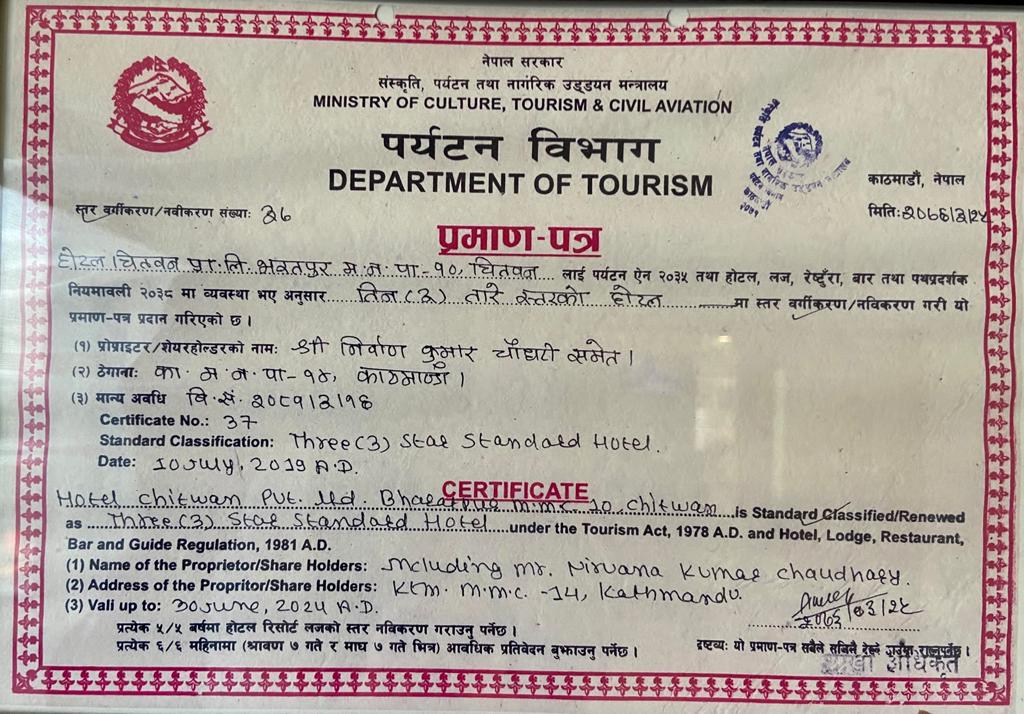 नेपाल सरकार
संस्कृति, पर्यटन तथा नागरिक उड्डयन मन्त्रालय
MINISTRY OF CULTURE, TOURISM & CIVIL AVIATION
पर्यटन विभाग
DEPARTMENT OF TOURISM
काठमाडौं, नेपाल
स्तर वर्गीकरण/नवीकरण संख्या: ३६
मिति:
प्रमाण-पत्र
होटल चितवन प्रा.लि. भरतपुर म.न.पा-१०, चितवन लाई पर्यटन ऐन २०३५ तथा होटल, लज, रेष्टुँरा, बार तथा पथप्रदर्शक
नियमावली २०३८ मा व्यवस्था भए अनुसार तिन (३) तारे स्तरको होटल मा स्तर वर्गीकरण/नविकरण गरी यो
प्रमाण-पत्र प्रदान गरिएको छ ।
(१) प्रोप्राइटर/शेयरहोल्डरको नाम: श्री निर्वाण कुमार चौधरी समेत ।
(२) ठेगाना: का.म.न.पा-१४, काठमाण्डौ ।
(३) मान्य अवधि वि.सं. २०८१/३/१६
Certificate No.: 37
Standard Classification: Three (3) Star Standard Hotel.
Date: 10 July, 2019 A.D.
CERTIFICATE
Hotel Chitwan Pvt. Ltd. Bharatpur M.M.C. 10, Chitwan is Standard Classified/Renewed
as Three (3) Star Standard Hotel under the Tourism Act, 1978 A.D. and Hotel, Lodge, Restaurant,
Bar and Guide Regulation, 1981 A.D.
(1) Name of the Proprietor/Share Holders: Including Mr. Nirvana Kumar Chaudhary.
(2) Address of the Propritor/Share Holders: Ktm. M.M.C. -14, Kathmandu.
(3) Vali up to: 30 June, 2024 A.D.
प्रत्येक ५/५ बर्षमा होटल रिसोर्ट लजको स्तर नविकरण गराउनु पर्नेछ ।
प्रत्येक ६/६ महिनामा (श्रावण ७ गते र माघ ७ गते भित्र) आवधिक प्रतिवेदन बुझाउनु पर्नेछ ।
द्रष्टव्य: यो प्रमाण-पत्र सबैले सजिलै देख्ने गरी राख्नुपर्नेछ ।
शाखा अधिकृत